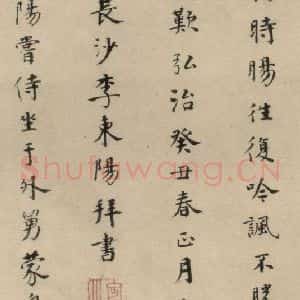 時暘往復吟諷不勝
歎弘治癸丑春正月
長沙李東陽拜書
陽嘗侍坐于外舅蒙
Shufawang.CN